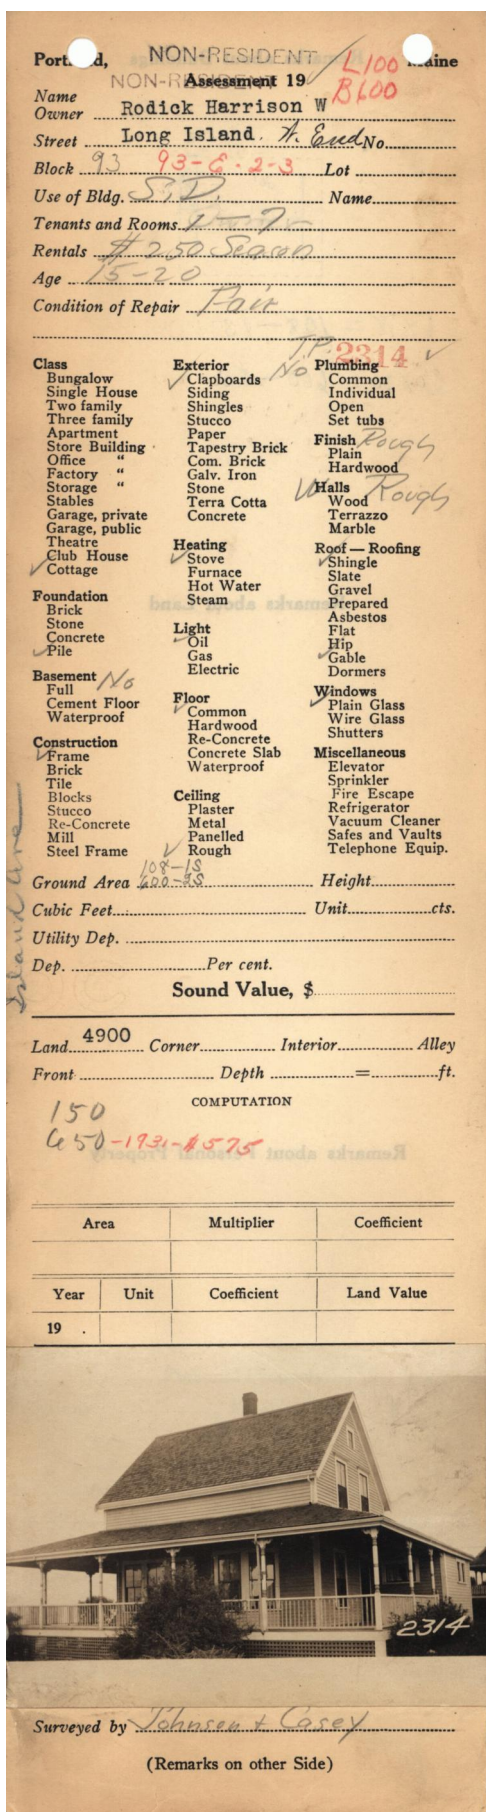 NON-RESIDENT
Portland, Maine
L100
NON-RESIDENT Assessment 19
B600
Name
Owner Rodick Harrison W
Street Long Island. A. End No.
Block 93 93-E-2-3 Lot
Use of Bldg. S.D. Name
Tenants and Rooms 1-7
Rentals $250 Season
Age 15-20
Condition of Repair Fair
T.P. 2314
Class
Bungalow
Single House
Two family
Three family
Apartment
Store Building
Office "
Factory "
Storage "
Stables
Garage, private
Garage, public
Theatre
Club House
✓ Cottage
Foundation
Brick
Stone
Concrete
✓ Pile
Basement No
Full
Cement Floor
Waterproof
Construction
✓ Frame
Brick
Tile
Blocks
Stucco
Re-Concrete
Mill
Steel Frame
Exterior
✓ Clapboards
Siding
Shingles
Stucco
Paper
Tapestry Brick
Com. Brick
Galv. Iron
Stone
Terra Cotta
Concrete
Heating
✓ Stove
Furnace
Hot Water
Steam
Light
✓ Oil
Gas
Electric
Floor
✓ Common
Hardwood
Re-Concrete
Concrete Slab
Waterproof
Ceiling
Plaster
Metal
Panelled
✓ Rough
No Plumbing ✓
Common
Individual
Open
Set tubs
Finish Rough
Plain
Hardwood
Halls Rough
Wood
Terrazzo
Marble
Roof — Roofing
✓ Shingle
Slate
Gravel
Prepared
Asbestos
Flat
Hip
✓ Gable
Dormers
Windows
✓ Plain Glass
Wire Glass
Shutters
Miscellaneous
Elevator
Sprinkler
Fire Escape
Refrigerator
Vacuum Cleaner
Safes and Vaults
Telephone Equip.
Island Ave
108-1S
Ground Area 600-2S Height
Cubic Feet Unit cts.
Utility Dep.
Dep. Per cent.
Sound Value, $
Land 4900 Corner Interior Alley
Front Depth = ft.
COMPUTATION
150
650-1931-$575
Area Multiplier Coefficient
Year Unit Coefficient Land Value
19 .
2314
Surveyed by Johnson + Casey
(Remarks on other Side)